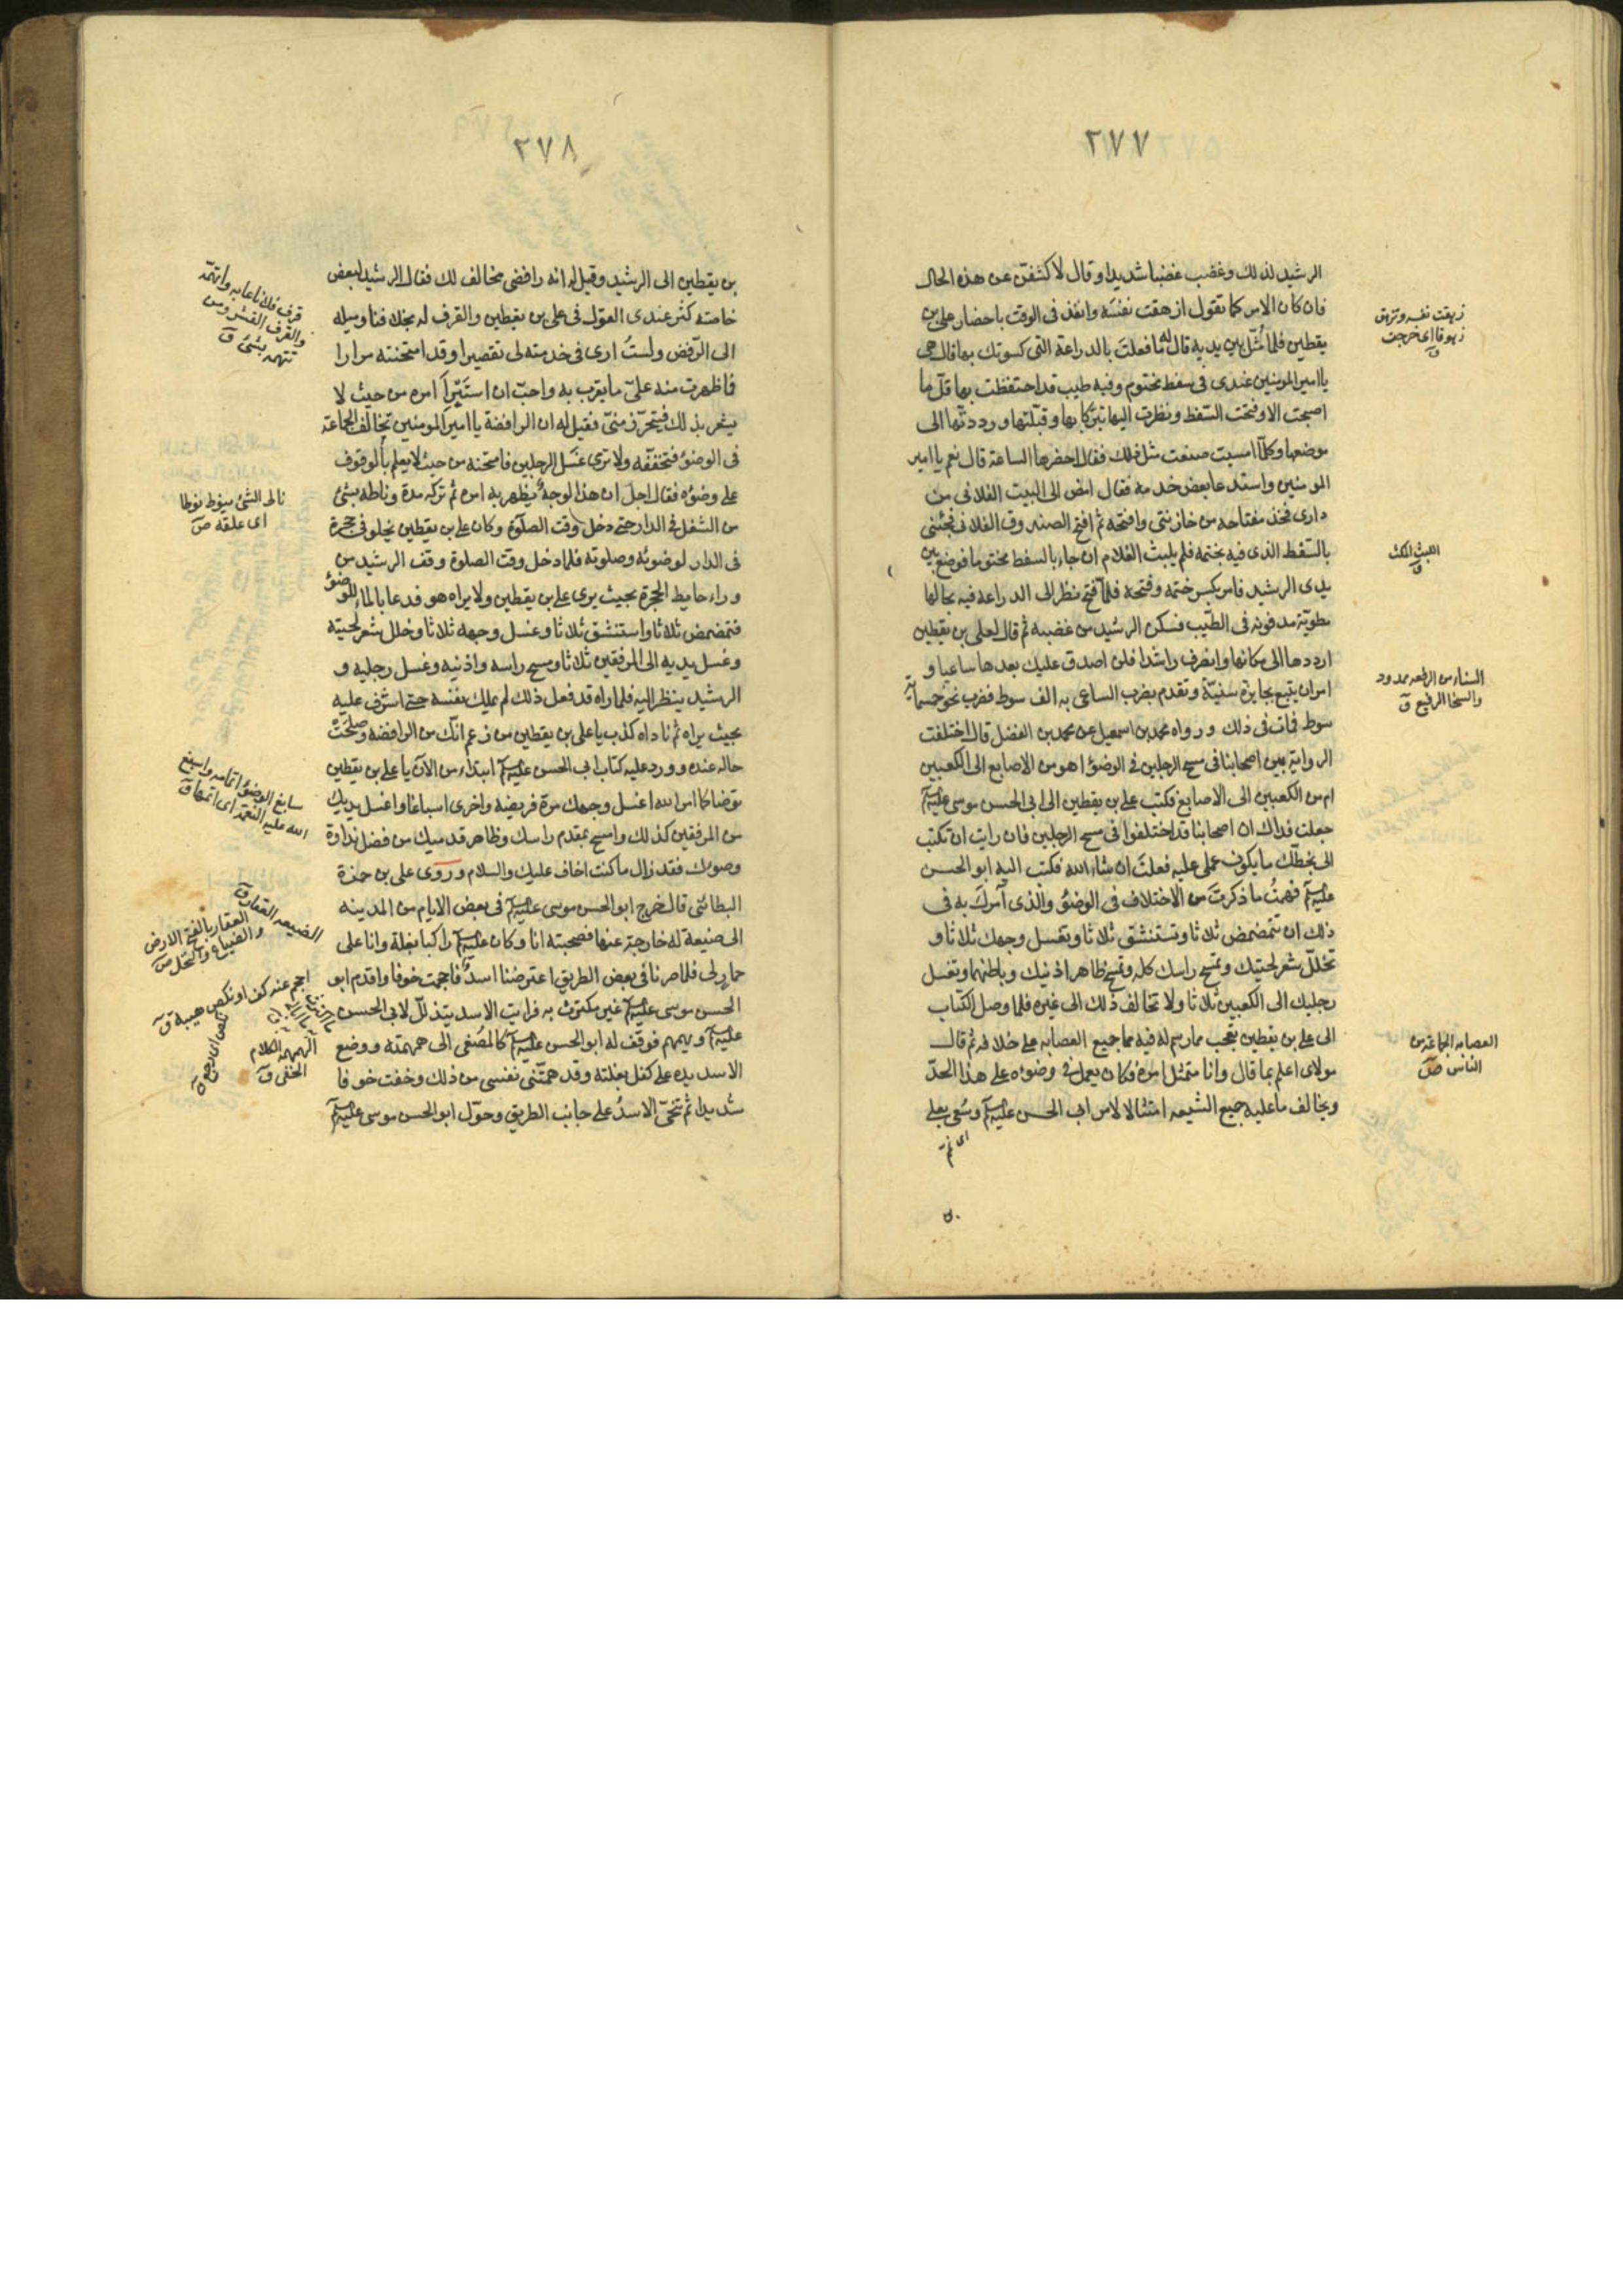 ٢٧٧
الرشيد لذلك وغضب غضبا شديدا وقال لاكشفن عن هذه الحال
فان كان الامر كما تقول ازهقت نفسه وانفذ في الوقت باحضار علي بن
يقطين فلما مثل بين يديه قال له ما فعلت بالدراعة التي كسوتك بها قال هي
يا امير المومنين عندي في سفط مختوم وفيه طيب قد احتفظت بها قل ما
اصبحت الا وفتحت السفط ونظرت اليها تبركا بها وقبلتها ورددتها الى
موضعها وكلما امسيت صنعت مثل ذلك فقال احضرها الساعة قال نعم يا امير
المومنين واستدعا بعض خدمه فقال امض الى البيت الفلاني من
داري فخذ مفتاحه من خازنتي وافتحه ثم افتح الصندوق الفلاني فجئني
بالسفط الذي فيه بختمه فلم يلبث الغلام ان جاء بالسفط مختوما فوضع بين
يدي الرشيد فامر بكسر ختمه وفتحه فلما فتح نظر الى الدراعة فيه بحالها
مطوية مدفونه في الطيب فسكن الرشيد من غضبه ثم قال لعلي بن يقطين
ارددها الى مكانها وانصرف راشدا فلن اصدق عليك بعدها ساعيا و
امر ان يتبع بجايزة سنية وتقدم بضرب الساعي به الف سوط فضرب نحو خمسماية
سوط فمات في ذلك وروا محمد بن اسمعيل عن محمد بن الفضل قال اختلفت
الرواية بين اصحابنا في مسح الرجلين في الوضوء اهو من الاصابع الى الكعبين
ام من الكعبين الى الاصابع فكتب علي بن يقطين الى ابي الحسن موسى عليه السلام
جعلت فداك ان اصحابنا قد اختلفوا في مسح الرجلين فان رايت ان تكتب
الى بخطك ما يكون عملي عليه فعلت ان شاء الله فكتب اليه ابو الحسن
عليه السلام فهمت ما ذكرت من الاختلاف في الوضوء والذي آمرك به في
ذلك ان تتمضمض ثلاثا وتستنشق ثلاثا وتغسل وجهك ثلاثا و
تخلل شعر لحيتك وتمسح راسك كله وتمسح ظاهر اذنيك وباطنهما وتغسل
رجليك الى الكعبين ثلاثا ولا تخالف ذلك الى غيره فلما وصل الكتاب
الى علي بن يقطين تعجب مما رسم له فيه مما جميع العصابه على خلافه ثم قال
مولاي اعلم بما قال وانا متمثل امره فكان يعمل في وضوءه على هذا الحد
ويخالف ما عليه جميع الشيعه امتثالا لامر ابي الحسن عليه السلام وسعى بعلي
اى نم
زهقت نفسه وتزهق
زهوقا اى خرجت
ق
اللبث المكث
ق
السناء من الرفعه ممدود
والسنا الرفيع ق
العصابه الجماعة من
الناس ص
٢٧٨
بن يقطين الى الرشيد وقيل له انه رافضي مخالف لك فقال الرشيد لبعض
خاصته كثر عندي القول في علي بن يقطين والقرف له بخلافنا وميله
الى الرفض ولست ارى في خدمته لي تقصيرا وقد امتحنته مرارا
فما ظهرت منه على ما يقرب به واحب ان استبرا امره من حيث لا
يشعر بذلك فيتحرز مني فقيل له ان الرافضة يا امير المومنين تخالف الجماعة
في الوضوء فتخففه ولا ترى غسل الرجلين فامتحنه من حيث لا يعلم بالوقوف
على وضوءه فقال اجل ان هذا الوجه يظهر به امره ثم تركه مدة وناطه بشئ
من الشغل في الدار حتى دخل وقت الصلوة وكان علي بن يقطين يخلو في حجرة
في الدار لوضوئه وصلوته فلما دخل وقت الصلوة وقف الرشيد من
وراء حايط الحجرة بحيث يرى علي بن يقطين ولا يراه هو فدعا بالماء للوضوء
فتمضمض ثلاثا واستنشق ثلاثا وغسل وجهه ثلاثا وخلل شعر لحيته
وغسل يديه الى المرفقين ثلاثا ومسح راسه واذنيه وغسل رجليه و
الرشيد ينظر اليه فلما راه قد فعل ذلك لم يملك نفسه حتى اشرف عليه
بحيث يراه ثم ناداه كذب يا علي بن يقطين من زعم انك من الرافضه وصلحت
حاله عنده وورد عليه كتاب ابي الحسن عليه السلام ابتداء من الآن يا علي بن يقطين
توضا كما امر الله اغسل وجهك مرة فريضة واخرى اسباغا واغسل يديك
من المرفقين كذلك وامسح بمقدم راسك وظاهر قدميك من فضل نداوة
وضوءك فقد زال ما كنت اخاف عليك والسلام وروى علي بن حمزة
البطائني قال خرج ابو الحسن موسى عليه السلام في بعض الايام من المدينه
الى ضيعة له خارجة عنها فصحبته انا وكان عليه السلام راكبا بغلة وانا على
حمار لي فلما صرنا في بعض الطريق اعترضنا اسد فاحجمت خوفا واقدم ابو
الحسن موسى عليه السلام غير مكترث به فرايت الاسد يتذلل لابي الحسن
عليه السلام ويهمهم فوقف له ابو الحسن عليه السلام كالمصغي الى همهمته ووضع
الاسد يده على كفل بغلته وقد همتني نفسي من ذلك وخفت خوفا
شديدا ثم تنحى الاسد على جانب الطريق وحول ابو الحسن موسى عليه السلام
قرف فلانا عابه واتهمه
والقرف القشر ومن
تتهمه بشئ ق
ناط الشئ ينوط نوطا
اى علقه ص
سابغ الوضوء اتمامه واسبغ
الله عليه النعمة اى اتمها ق
الضيعه العقار ق
العقار بالفتح الارض
والضياع والنخل ص
احجم عنه كف او نكص هيبة ق
نكص اى رجع ق
الهمهمة الكلام
الخفى ق